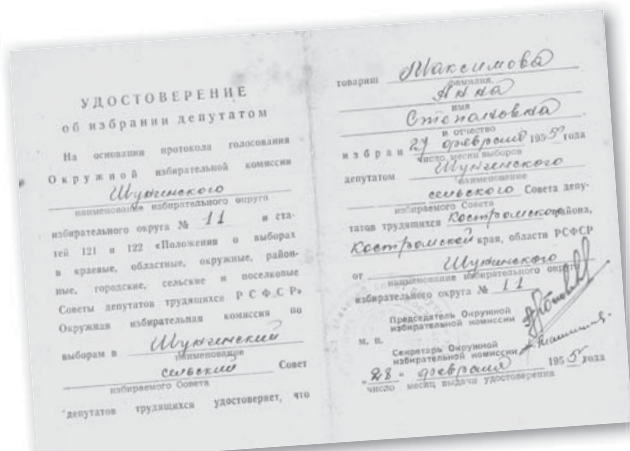 УДОСТОВЕРЕНИЕ
об избрании депутатом
На основании протокола голосования
Окружной избирательной комиссии
Шунгинского
наименование избирательного округа
избирательного округа № 11 и ста-
тей 121 и 122 «Положения о выборах
в краевые, областные, окружные, район-
ные, городские, сельские и поселковые
Советы депутатов трудящихся РСФСР»
Окружная избирательная комиссия по
выборам в Шунгинский
наименование
сельский Совет
избираемого Совета
депутатов трудящихся удостоверяет, что
товарищ Максимова
фамилия,
Анна
имя
Степановна
и отчество
избран 27 февраля 1955 года
число месяц выборов
депутатом Шунгинского
наименование
сельского Совета депу-
избираемого Совета
татов трудящихся Костромского района,
Костромской края, области РСФСР
от Шунгинского
наименования избирательного округа
избирательного округа № 11
Председатель Окружной
избирательной комиссии
М. П.
Секретарь Окружной
избирательной комиссии
„28“ февраля 1955 года
число месяц выдачи удостоверения